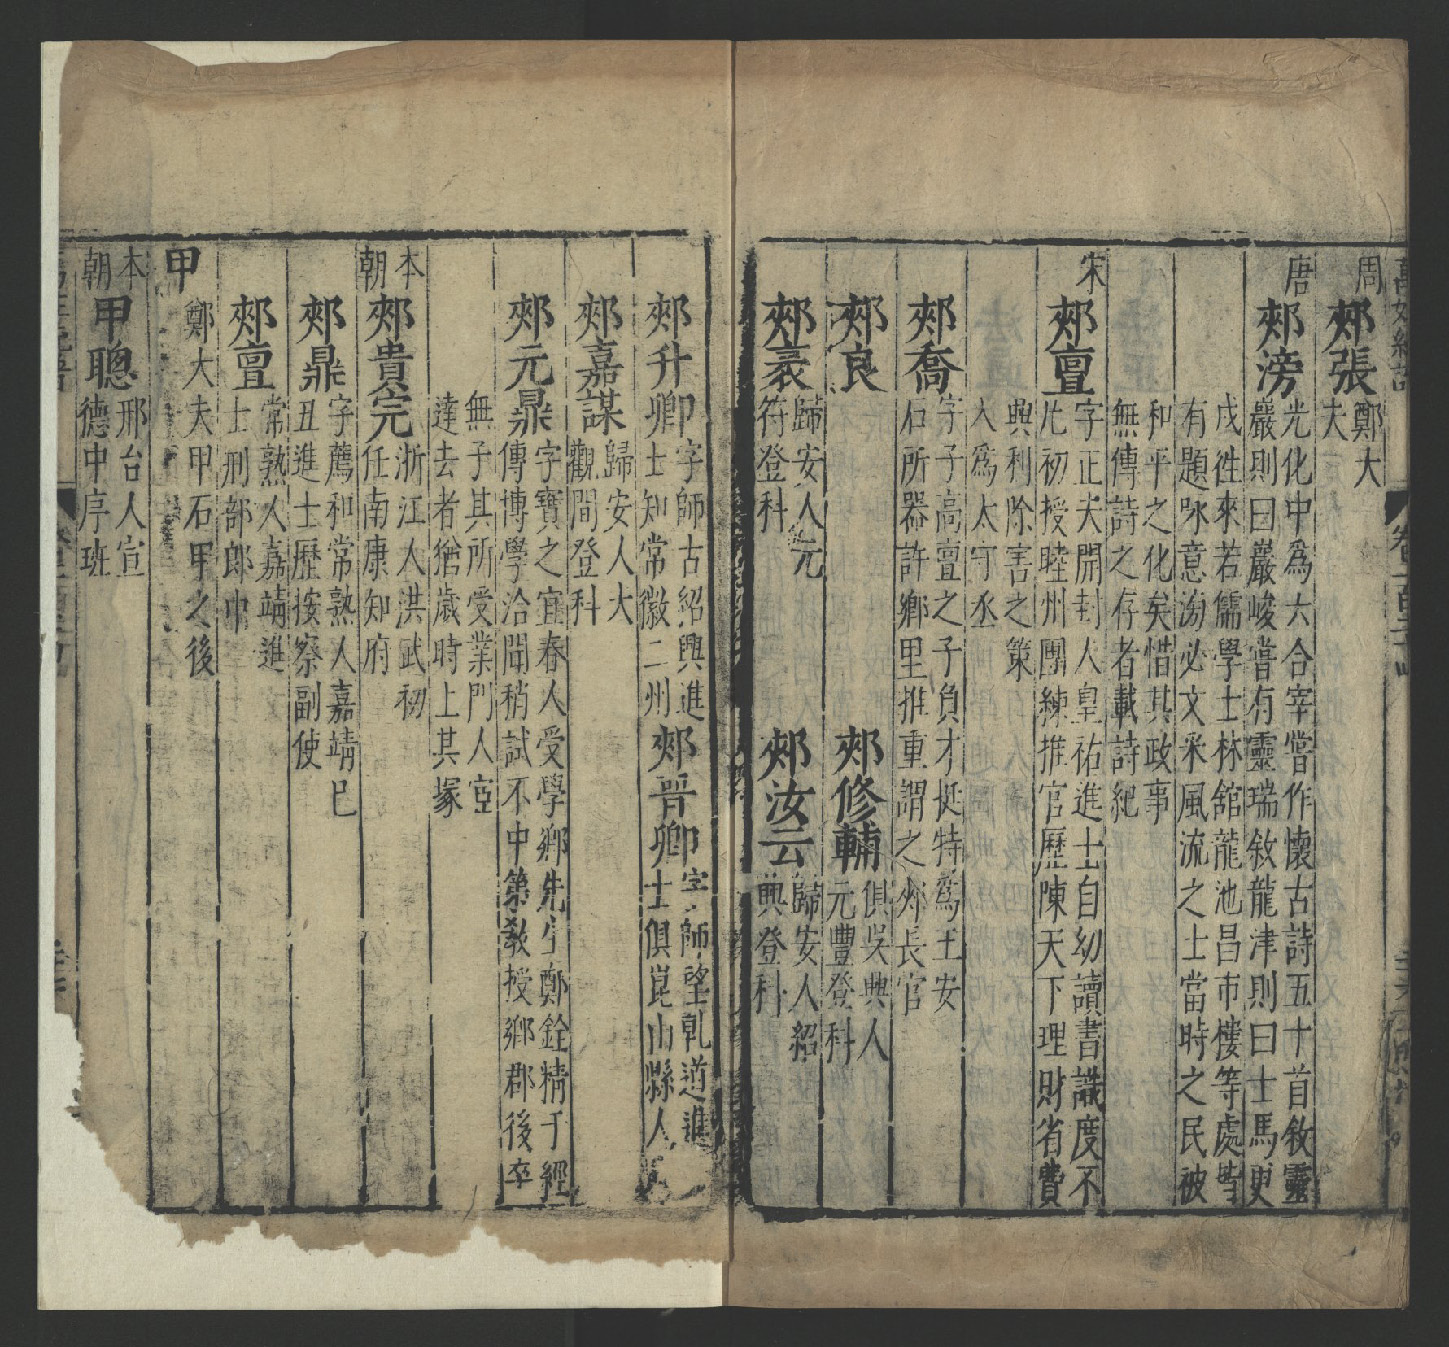 萬姓統譜
卷一百二十四
周
郟張
鄭大
夫
唐
郟滂
光化中為六合宰嘗作懷古詩五十首敘靈
巖則曰巖峻嘗有靈瑞敘龍津則曰士馬更
戍徃來若儒學士林舘龍池昌市樓等處皆
有題咏意泐必文釆風流之士當時之民被
和平之化矣惜其政事
無傳詩之存者載詩紀
宋
郟亶
字正夫開封人皇祐進士自幼讀書識度不
凡初授睦州團練推官歷陳天下理財省費
興利除害之策
入為太守丞
郟喬
字子高亶之子負才挺特為王安
石所器許鄉里推重謂之郊長官
郟良
郟修輔
俱吳興人
元豐登科
郟袤
歸安人元
符登科
郟汝云
歸安人紹
興登科
郟升卿
字師古紹興進
士知常徽二州
郟晉卿
字師望乹道進
士俱崑山縣人
郟嘉謀
歸安人大
觀間登科
郟元鼎
字寳之宜春人受學鄉先生鄭銓精于經
傳博學洽聞稍試不中第敎授鄉郡後卒
無子其所受業門人宦
達去者猶歲時上其塚
本
朝
郟貴完
浙江人洪武初
任南康知府
郟鼎
字薦和常熟人嘉靖己
丑進士歷按察副使
郟亶
常熟人嘉靖進
士刑部郎中
甲
鄭大夫甲石甲之後
本
朝
甲聰
邢台人宣
德中序班